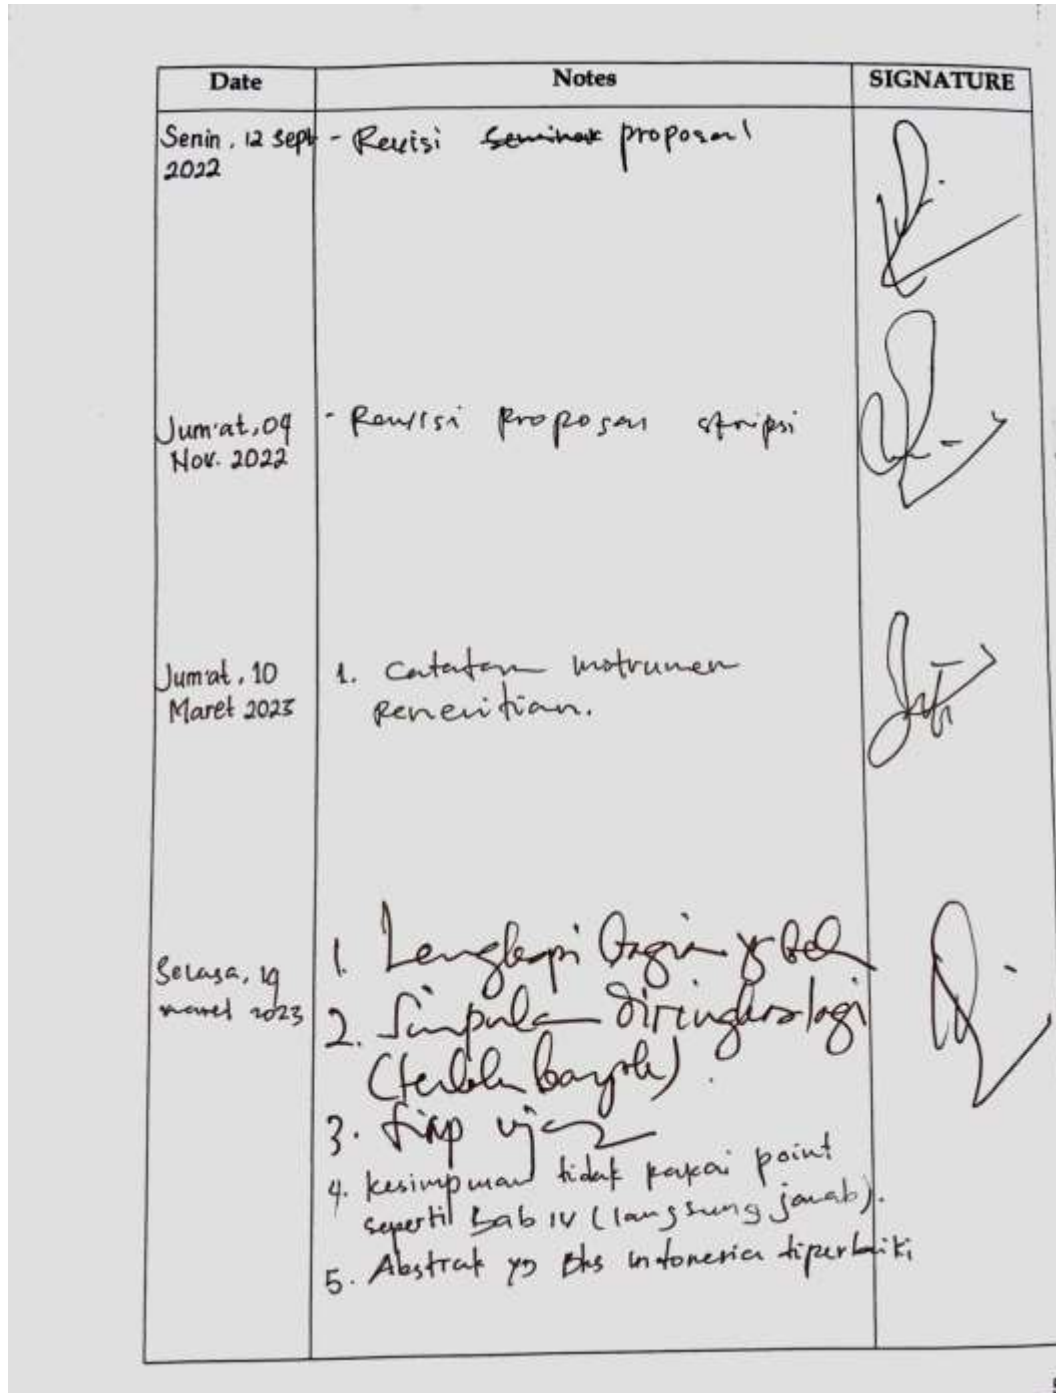 Date Notes SIGNATURE
Senin, 12 Sept - Revisi seminar proposal
2022
Jum'at, 04 - Revisi proposal skripsi
Nov. 2022
Jum'at, 10 1. Catatan instrumen
Maret 2023 penelitian.
Selasa, 19 1. Lengkapi bagian yg blm
maret 2023 2. Simpulan diringkas lagi
(terlalu banyak).
3. Siap ujian
4. kesimpulan tidak pakai point
seperti Bab IV (langsung jawab).
5. Abstrak yg Bhs indonesia diperbaiki